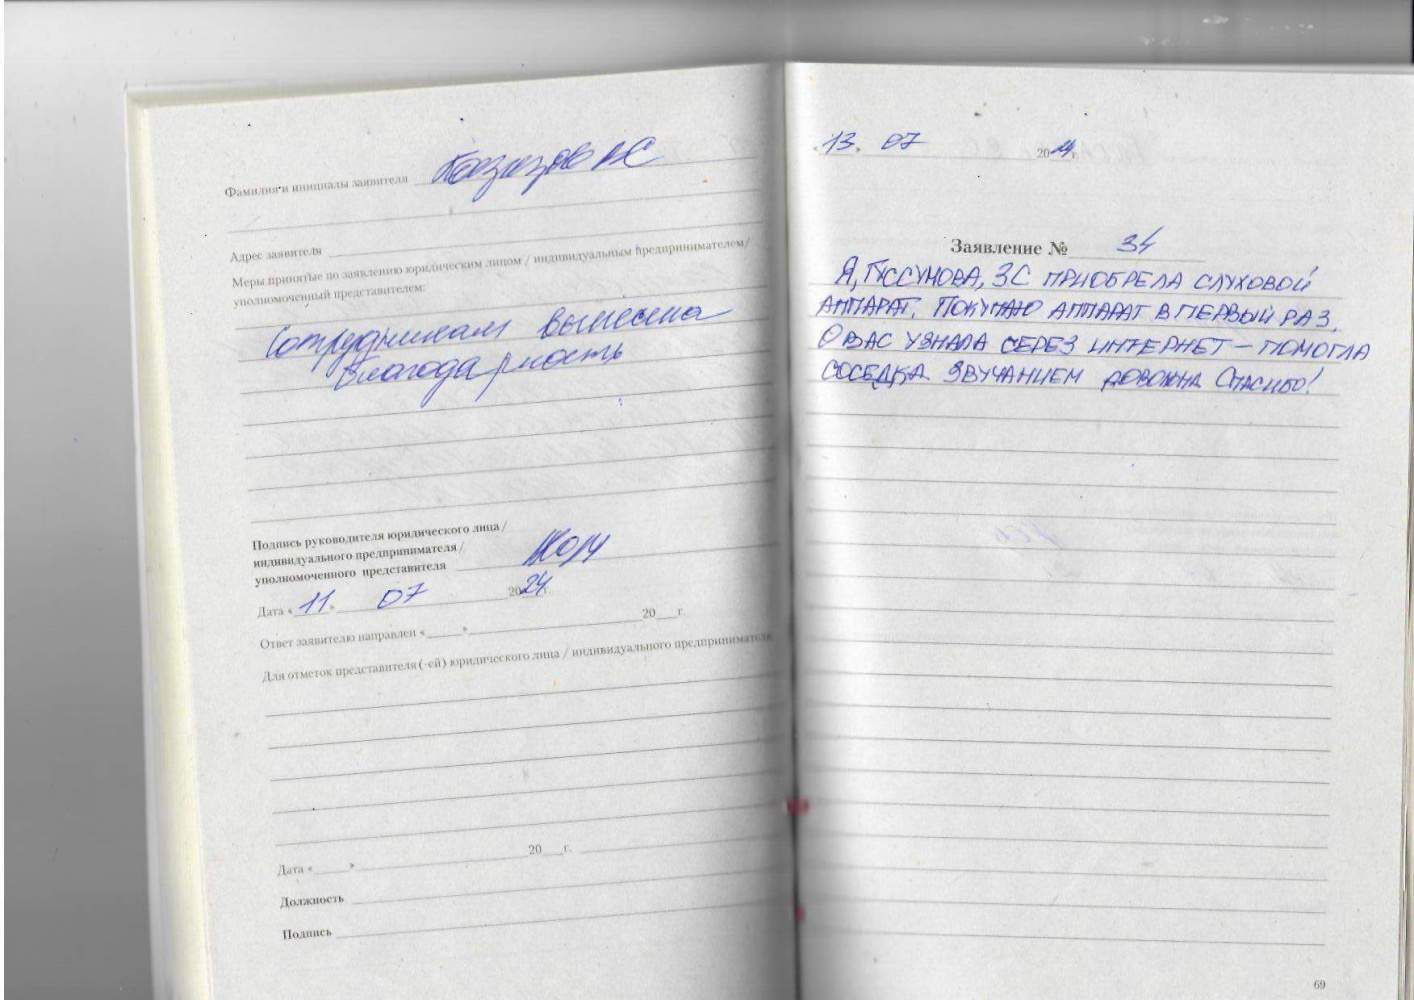 Фамилия и инициалы заявителя
Адрес заявителя
Меры принятые по заявлению юридическим лицом / индивидуальным предпринимателем/
уполномоченный представителем:
Сотрудникам вынесена
благодарность
Подпись руководителя юридического лица /
индивидуального предпринимателя /
уполномоченного представителя
Дата « 11 » 07 2024 г.
Ответ заявителю направлен « » 20 г.
Для отметок представителя (-ей) юридического лица / индивидуального предпринимателя
Дата « » 20 г.
Должность
Подпись
« 13 » 07 20 г.
Заявление № 34
Я, ЗС ПРИОБРЕЛА СЛУХОВОЙ
АППАРАТ. ПОКУПАЮ АППАРАТ В ПЕРВЫЙ РАЗ.
О ВАС УЗНАЛА ЧЕРЕЗ ИНТЕРНЕТ – ПОМОГЛА
СОСЕДКА ЗВУЧАНИЕМ ДОВОЛЬНА СПАСИБО!
69